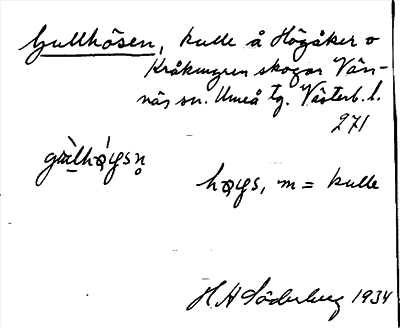 Gullhösen, kulle å Högåker o
Kråkmyren skogar Vän-
näs sn. Umeå tg. Västerb. l.
271
hǫys, m = kulle
H A Söderberg 1934